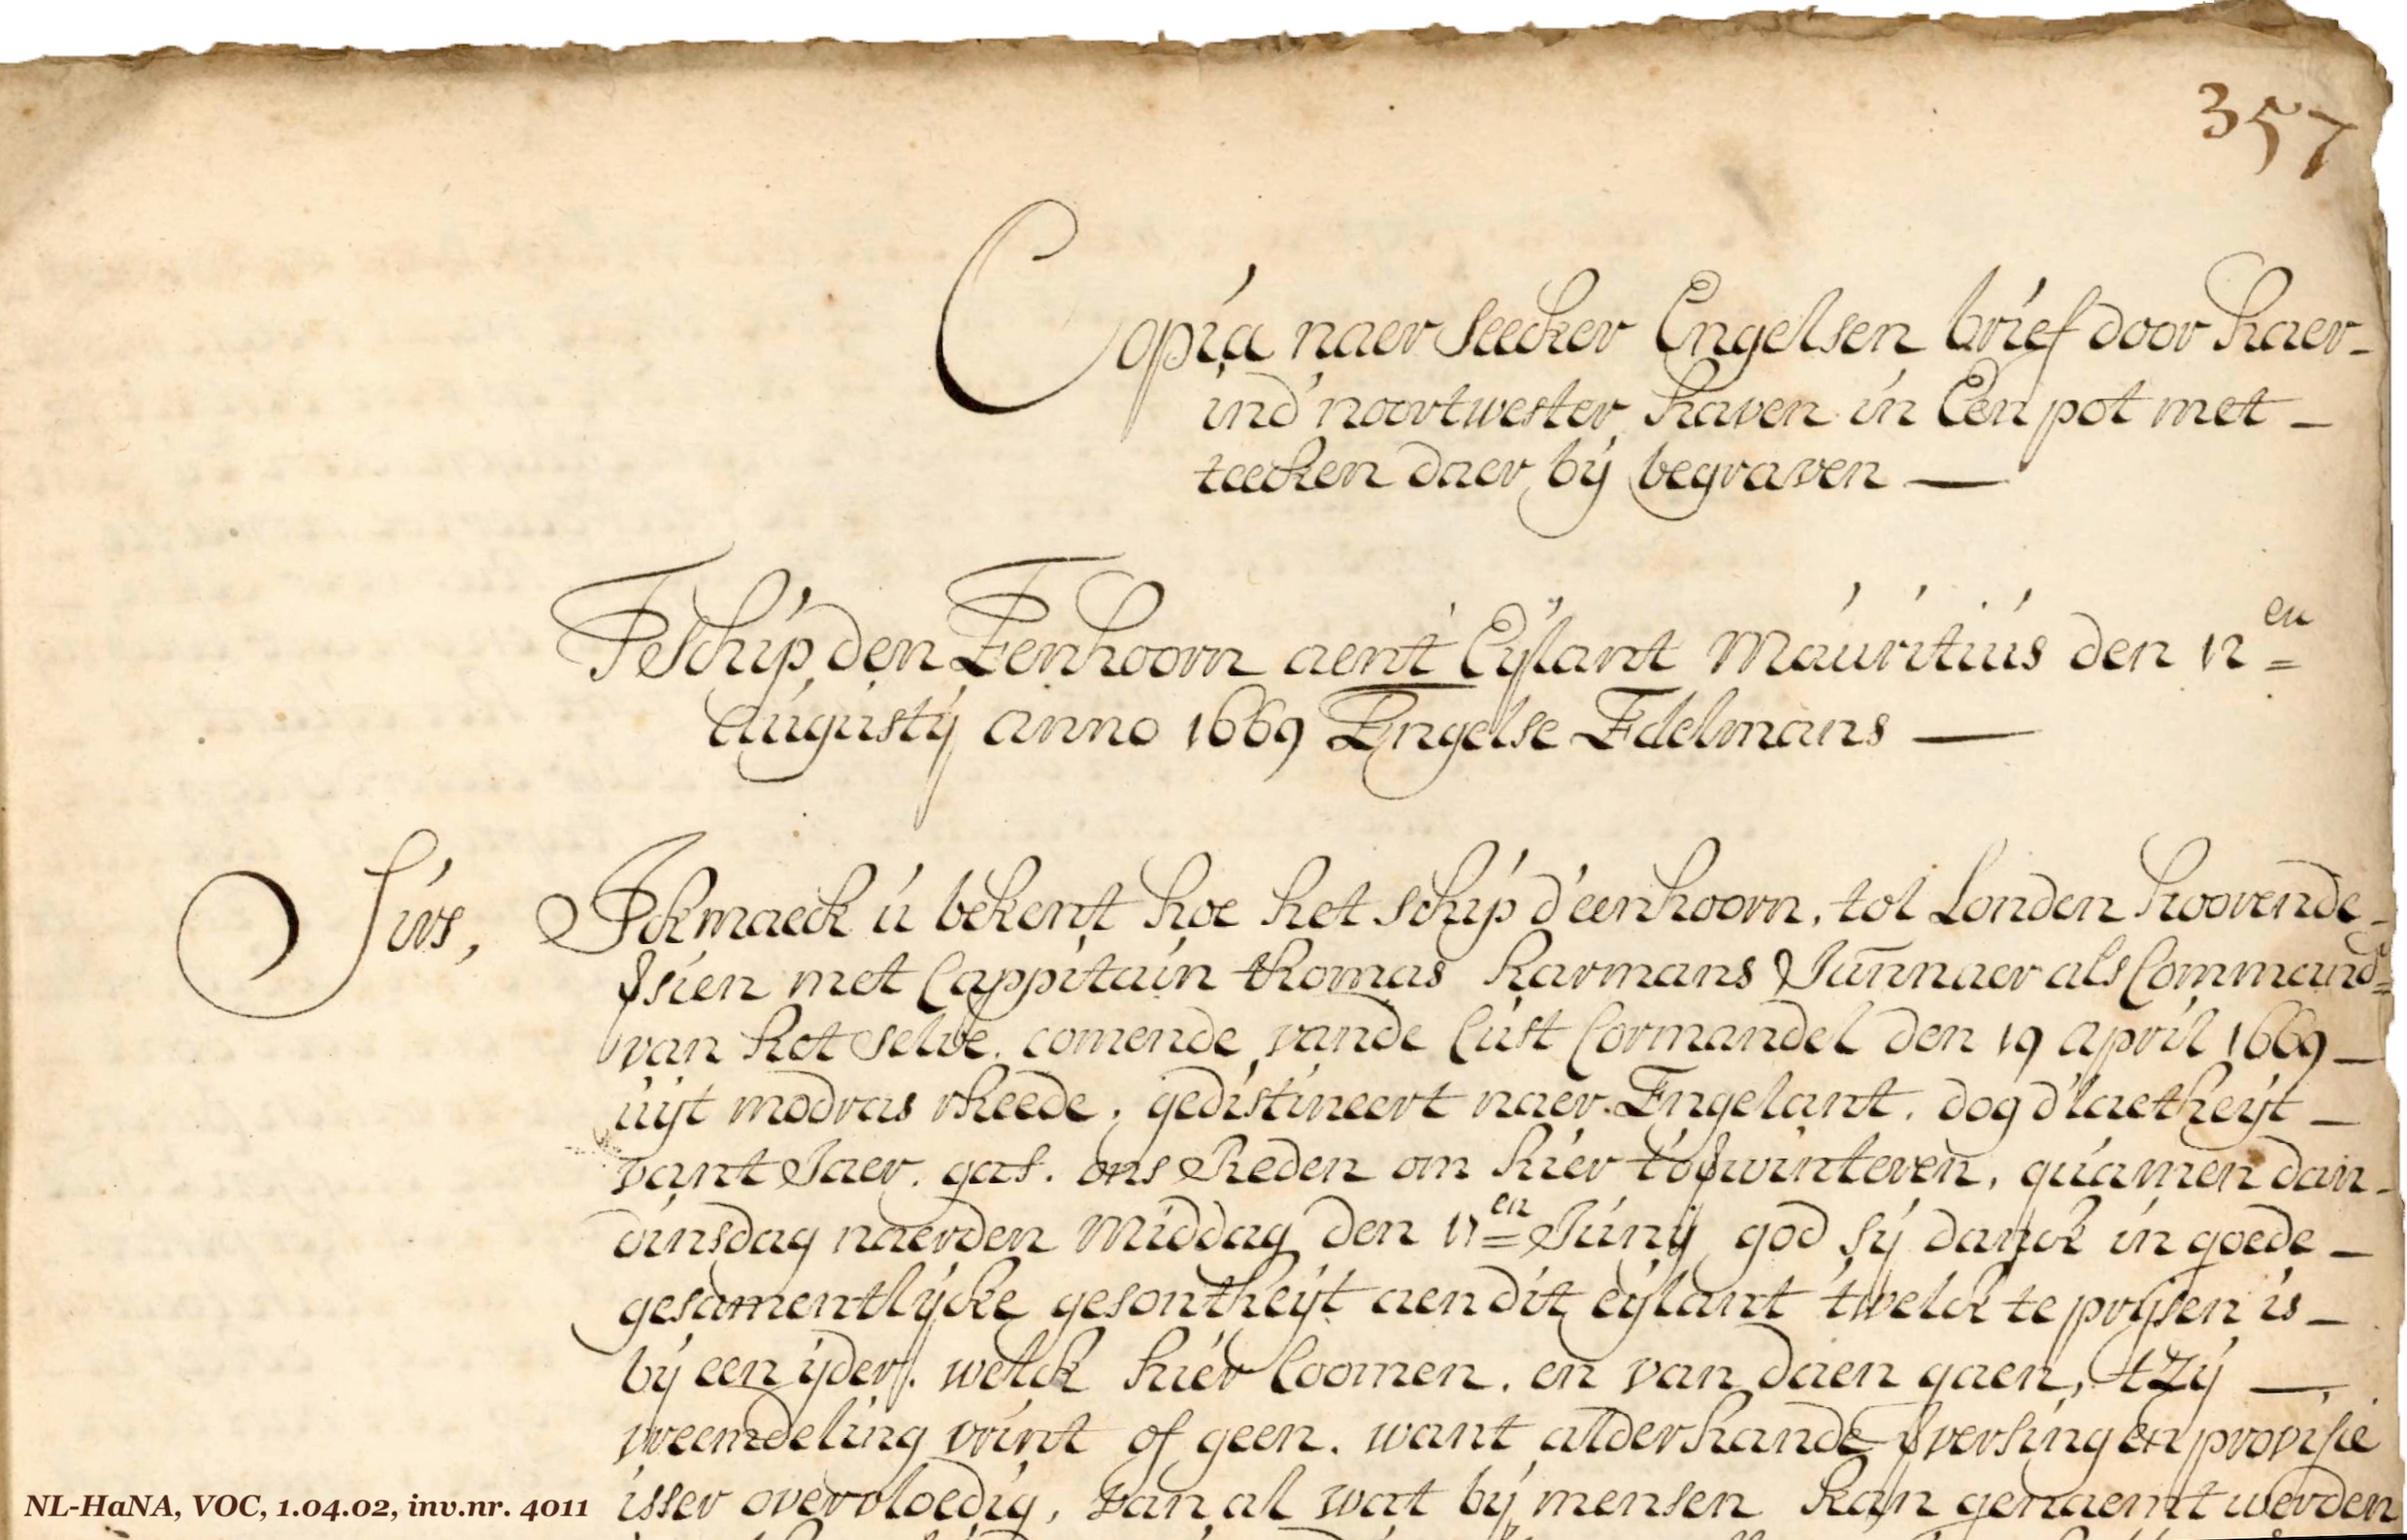 357
Copia naer seecker Engelsen brief door haer
ind' noortwester haven in Een pot met
teecken daer bij begraven
Tschip den Eenhoorn aent Eijlant Mauritius den 12en
augustij anno 1669 Engelse Edelmans
Sirs, Ick maeck u bekent hoe het schip d'eenhoorn, tot Londen hoorende
sien met Cappitain thomas harmans als Command
van het selve. comende vande Cust Cormandel den 19 april 1669
uijt madras rheede, gedistineert naer. Engelant. dog d'laetheijt
vant Jaer. gaf. ons Reden om hier winteren, quamen dan
dinsdag naerden middag den 11en Junij god sij danck in goede
gesamentlijcke gesontheijt aen dit eijlant t'welck te prijsen is
bij een ijder. welck hier Coomen. en van daen gaen, tZij
vreemdeling vrint of geen. want alderhande versing en provisie
isser overvloedig, van al wat bij mensen kan genaemt werden
NL-HaNA, VOC, 1.04.02, inv.nr. 4011